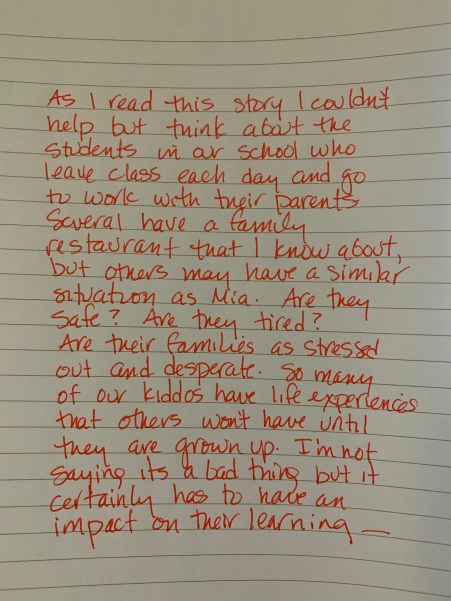 As I read this story I couldn't
help but think about the
students in our school who
leave class each day and go
to work with their parents
Several have a family
restaurant that I know about,
but others may have a similar
situation as Mia. Are they
safe? Are they tired?
Are their families as stressed
out and desperate. So many
of our kiddos have life experiences
that others won't have until
they are grown up. I'm not
saying its a bad thing but it
certainly has to have an
impact on their learning —